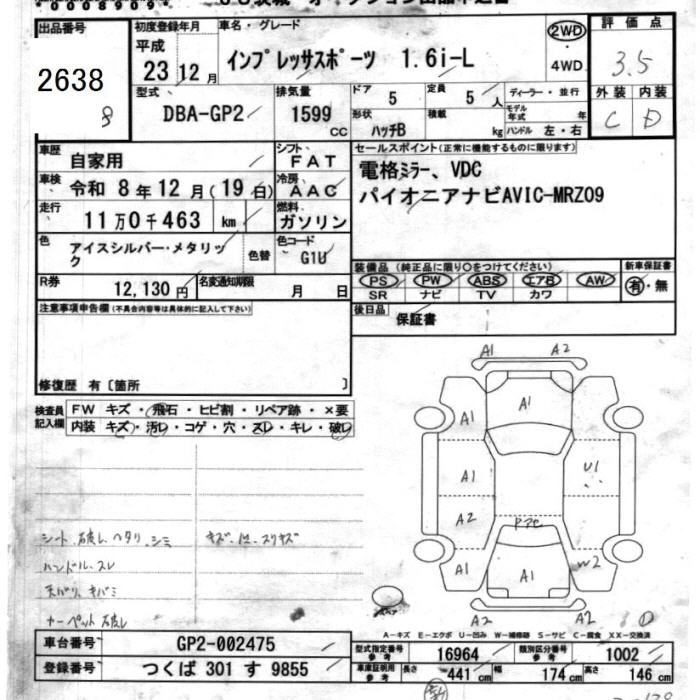 *00089090*
出品番号
2638
8
初度登録年月
平成
23 12 月
車名・グレード
インプレッサスポーツ 1.6i-L
2WD
・
4WD
評価点
3.5
外装 内装
C D
型式
DBA-GP2
排気量
1599
CC
ドア 5
形状 ハッチB
定員 5 人
積載 kg
ディーラー・並行
モデル年式 年
ハンドル 左・右
車歴 自家用
シフト FAT
車検 令和 8年12月(19日)
冷房 AAC
走行 11万0千463 km
燃料 ガソリン
色 アイスシルバー・メタリック
色替
色コード G1U
R券 12,130円
名変通知期限 月 日
セールスポイント(正常に機能するものに限ります)
電格ミラー、VDC
パイオニアナビAVIC-MRZ09
装備品 (純正品に限り○をつけてください)
PS PW ABS エアB AW
SR ナビ TV カワ
新車保証書
有・無
後日品
保証書
注意事項申告欄(不具合内容等は具体的に記入して下さい)
修復歴 有〔箇所 〕
検査員記入欄
FW キズ・飛石・ヒビ割・リペア跡・×要
内装 キズ・汚レ・コゲ・穴・スレ・キレ・破レ
シート 破レ ヘタリ シミ
ハンドル スレ
天バリ キバミ
カーペット 破レ
A1 A2
A1
A1
A1
U1
A2
A1
W2
A1
A2 A2
A-キズ E-エクボ U-凹み W-補修跡 S-サビ C-腐食 XX-交換済
車台番号 GP2-002475
登録番号 つくば 301 す 9855
型式指定番号 参考 16964
類別区分番号 参考 1002
車庫証明用 参考
長さ 441 cm
幅 174 cm
高さ 146 cm